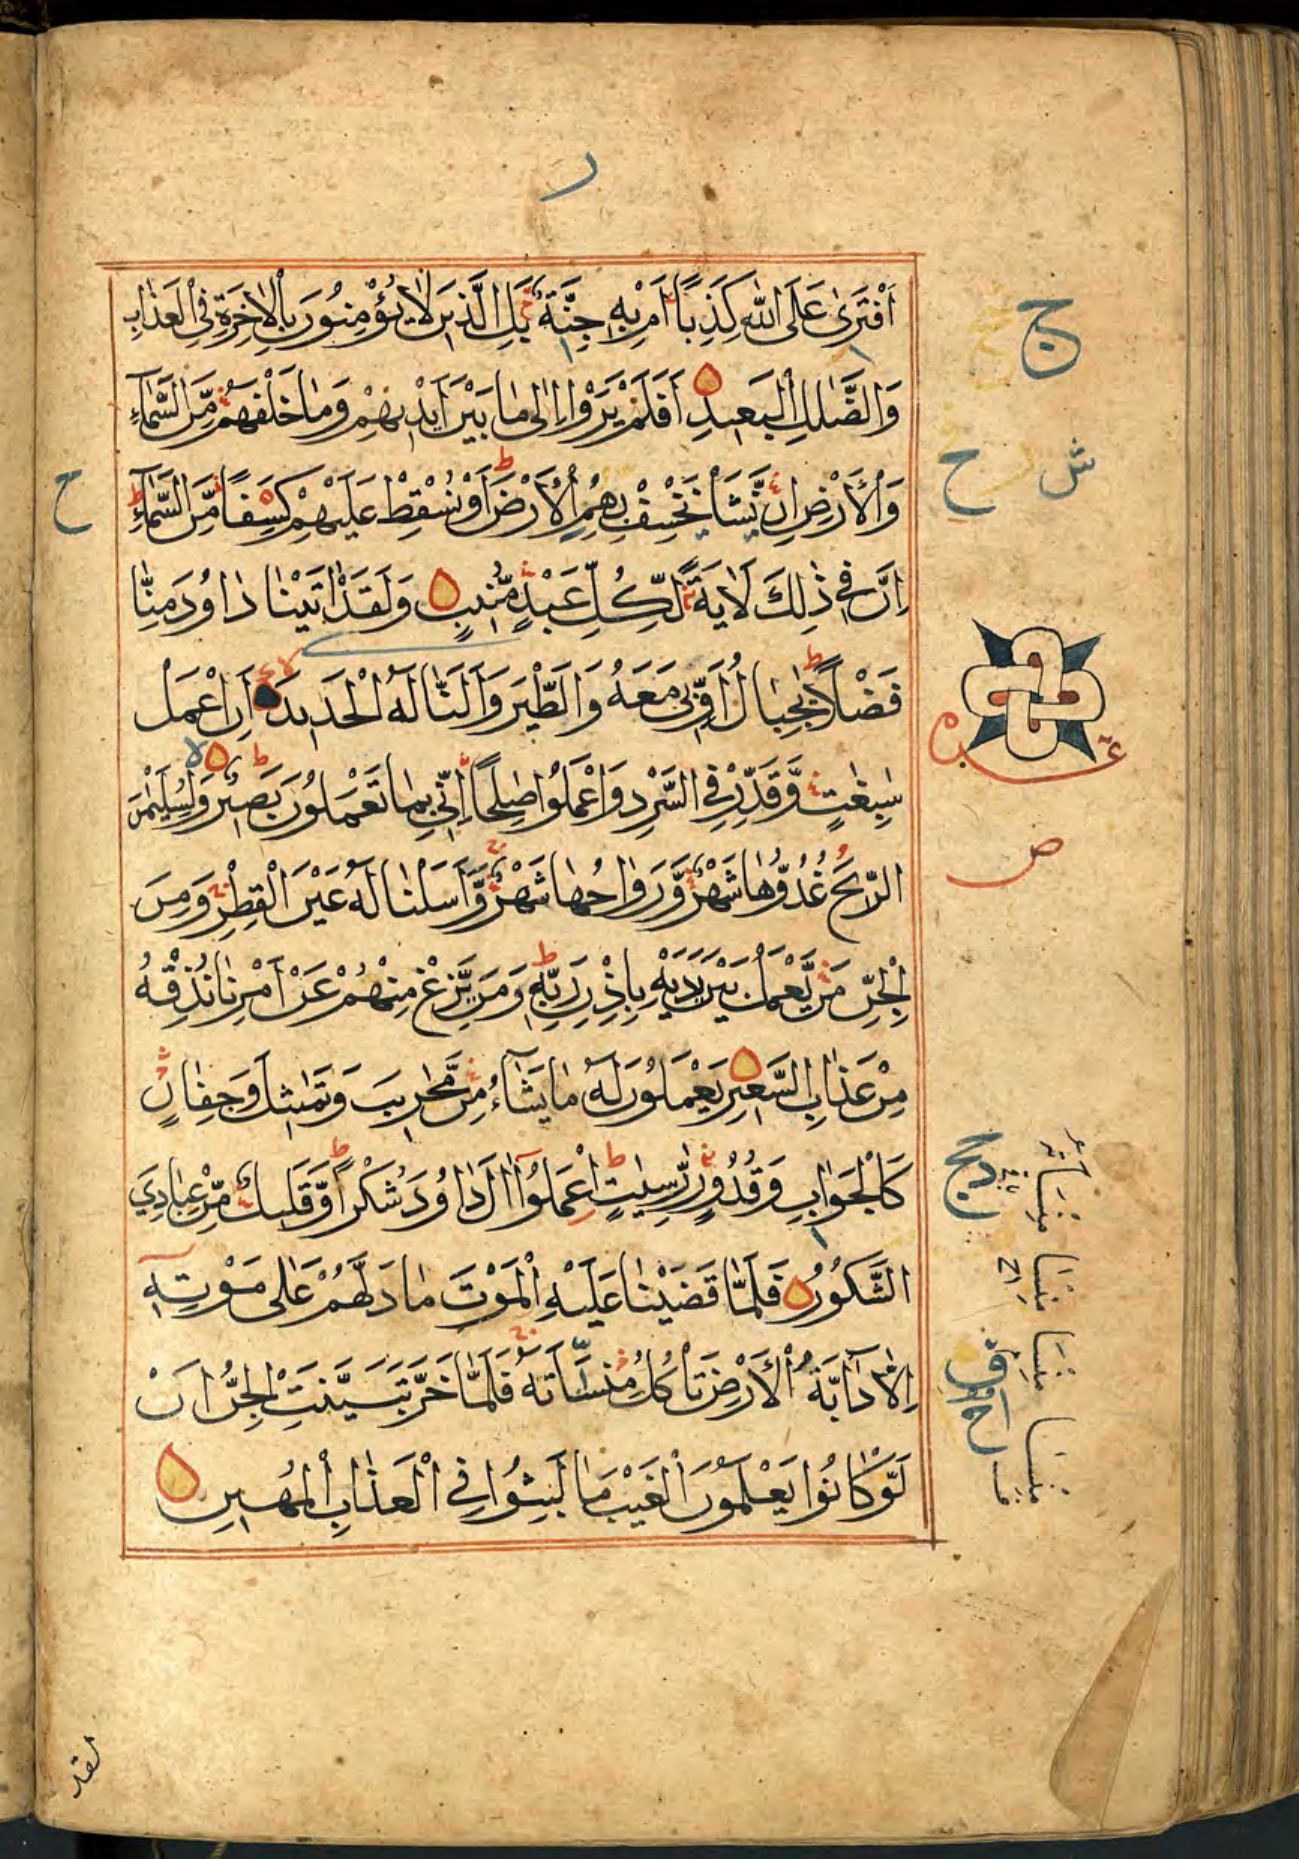 أَفْتَرَىٰ عَلَى اللَّهِ كَذِبًا أَمْ بِهِ جِنَّةٌ بَلِ الَّذِينَ لَا يُؤْمِنُونَ بِالْآخِرَةِ فِي الْعَذَابِ
وَالضَّلَٰلِ الْبَعِيدِ أَفَلَمْ يَرَوْا إِلَىٰ مَا بَيْنَ أَيْدِيهِمْ وَمَا خَلْفَهُمْ مِّنَ السَّمَآءِ
وَالْأَرْضِ إِنْ نَّشَأْ نَخْسِفْ بِهِمُ الْأَرْضَ أَوْ نُسْقِطْ عَلَيْهِمْ كِسَفًا مِّنَ السَّمَآءِ
إِنَّ فِي ذَٰلِكَ لَآيَةً لِّكُلِّ عَبْدٍ مُّنِيبٍ وَلَقَدْ آتَيْنَا دَاوُدَ مِنَّا
فَضْلًا يَٰجِبَالُ أَوِّبِي مَعَهُ وَالطَّيْرَ وَأَلَنَّا لَهُ الْحَدِيدَ أَنِ اعْمَلْ
سَٰبِغَٰتٍ وَّقَدِّرْ فِي السَّرْدِ وَاعْمَلُوا صَٰلِحًا إِنِّي بِمَا تَعْمَلُونَ بَصِيرٌ وَلِسُلَيْمَٰنَ
الرِّيحَ غُدُوُّهَا شَهْرٌ وَّرَوَاحُهَا شَهْرٌ وَّأَسَلْنَا لَهُ عَيْنَ الْقِطْرِ وَمِنَ
الْجِنِّ مَنْ يَّعْمَلُ بَيْنَ يَدَيْهِ بِإِذْنِ رَبِّهِ وَمَنْ يَّزِغْ مِنْهُمْ عَنْ أَمْرِنَا نُذِقْهُ
مِنْ عَذَابِ السَّعِيرِ يَعْمَلُونَ لَهُ مَا يَشَآءُ مِنْ مَّحَٰرِيبَ وَتَمَٰثِيلَ وَجِفَانٍ
كَالْجَوَابِ وَقُدُورٍ رَّٰسِيَٰتٍ اعْمَلُوا آلَ دَاوُدَ شُكْرًا وَّقَلِيلٌ مِّنْ عِبَادِيَ
الشَّكُورُ فَلَمَّا قَضَيْنَا عَلَيْهِ الْمَوْتَ مَا دَلَّهُمْ عَلَىٰ مَوْتِهِ
إِلَّا دَآبَّةُ الْأَرْضِ تَأْكُلُ مِنْسَأَتَهُ فَلَمَّا خَرَّ تَبَيَّنَتِ الْجِنُّ أَنْ
لَّوْ كَانُوا يَعْلَمُونَ الْغَيْبَ مَا لَبِثُوا فِي الْعَذَابِ الْمُهِينِ
ر
ج
ح
ش
ح
ع
ص
لقد